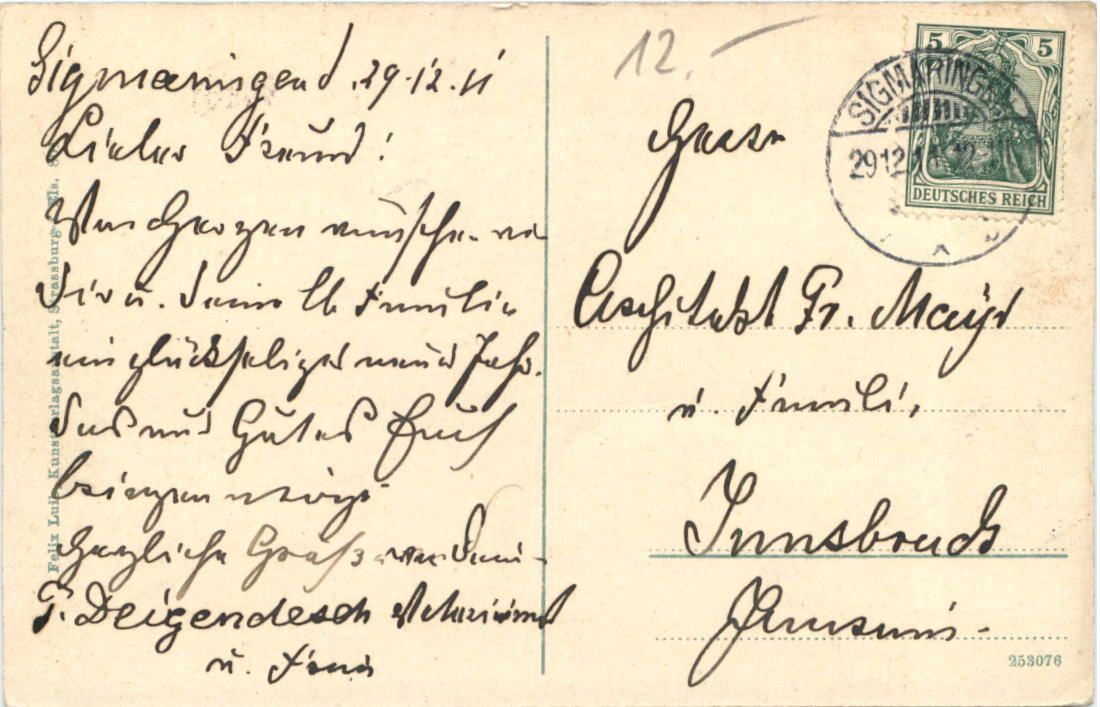 Sigmaringen d. 29.12.11
Lieber Freund!
Von Herzen wünsche
Dir u. Deiner lb Familie
ein glückseliges neues Jahr.
Das nur Gutes Euch
bringen möge
Herzliche Grüße von Deinem
F. Deigendesch
u. Frau
Felix Luib, Kunstverlagsanstalt, Strassburg Els.
12.–
5 5
DEUTSCHES REICH
SIGMARINGEN
29.12.11
Herrn
Architekt Fr. Mayr
u. Familie
Innsbruck
253076